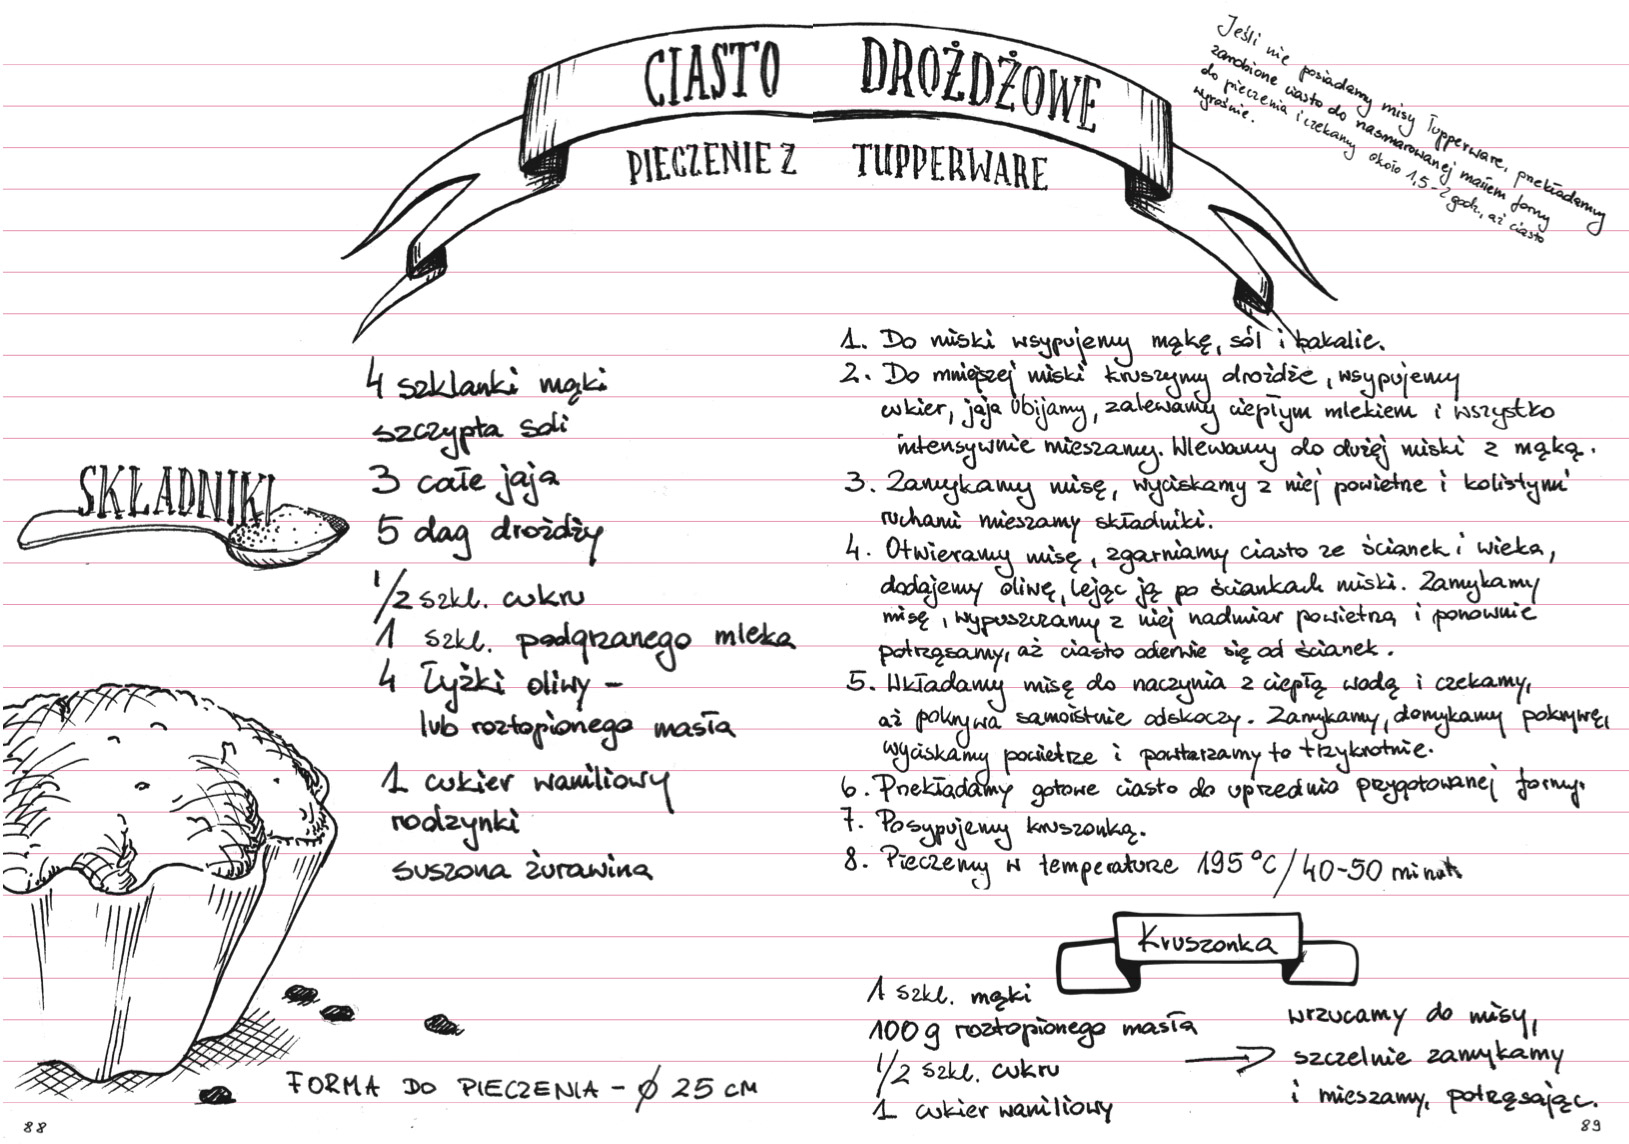 CIASTO DROŻDŻOWE
PIECZENIE Z TUPPERWARE
Jeśli nie posiadamy misy Tupperware, przekładamy
zarobione ciasto do nasmarowanej masłem formy
do pieczenia i czekamy około 1,5-2 godz., aż ciasto
wyrośnie.
SKŁADNIKI
4 szklanki mąki
szczypta soli
3 całe jaja
5 dag drożdży
1/2 szkl. cukru
1 szkl. podgrzanego mleka
4 łyżki oliwy –
lub roztopionego masła
1 cukier waniliowy
rodzynki
suszona żurawina
FORMA DO PIECZENIA – ø 25 CM
88
1. Do miski wsypujemy mąkę, sól i bakalie.
2. Do mniejszej miski kruszymy drożdże, wsypujemy
cukier, jaja ubijamy, zalewamy ciepłym mlekiem i wszystko
intensywnie mieszamy. Wlewamy do dużej miski z mąką.
3. Zamykamy misę, wyciskamy z niej powietrze i kolistymi
ruchami mieszamy składniki.
4. Otwieramy misę, zgarniamy ciasto ze ścianek i wieka,
dodajemy oliwę, lejąc ją po ściankach miski. Zamykamy
misę, wypuszczamy z niej nadmiar powietrza i ponownie
potrząsamy, aż ciasto oderwie się od ścianek.
5. Wkładamy misę do naczynia z ciepłą wodą i czekamy,
aż pokrywa samoistnie odskoczy. Zamykamy, domykamy pokrywę,
wyciskamy powietrze i powtarzamy to trzykrotnie.
6. Przekładamy gotowe ciasto do uprzednio przygotowanej formy.
7. Posypujemy kruszonką.
8. Pieczemy w temperaturze 195°C/40-50 minut.
Kruszonka
1 szkl. mąki
100 g roztopionego masła
1/2 szkl. cukru
1 cukier waniliowy
wrzucamy do misy,
szczelnie zamykamy
i mieszamy, potrząsając.
89